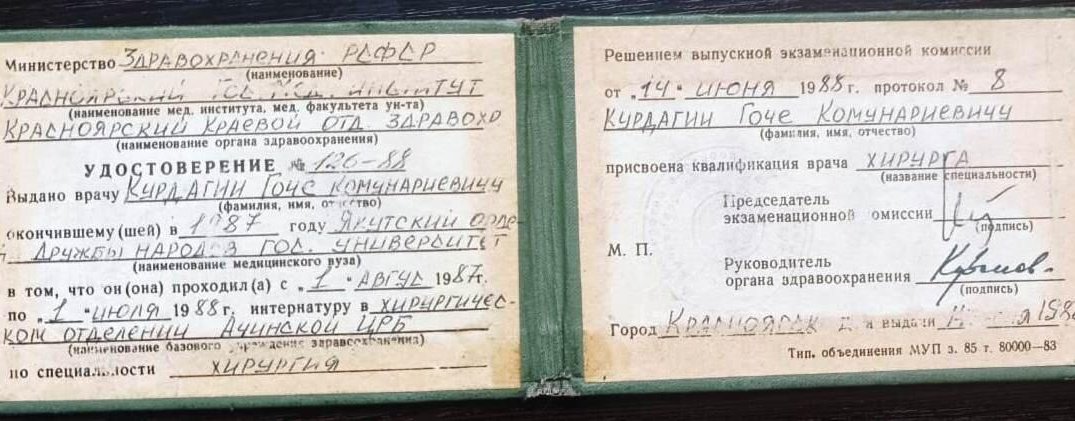 Министерство ЗДРАВОХРАНЕНИЯ РСФСР
(наименование)
КРАСНОЯРСКИЙ ГОС. МЕД. ИНСТИТУТ
(наименование мед. института, мед. факультета ун-та)
КРАСНОЯРСКИЙ КРАЕВОЙ ОТД. ЗДРАВОХР
(наименование органа здравоохранения)
УДОСТОВЕРЕНИЕ № 126-88
Выдано врачу КУРДАГИИ ГОЧЕ КОМУНАРИЕВИЧУ
(фамилия, имя, отчество)
окончившему(шей) в 1987 году ЯКУТСКИЙ ОРДЕ-
ДРУЖБЫ НАРОДОВ ГОС. УНИВЕРСИТЕТ
(наименование медицинского вуза)
в том, что он(она) проходил(а) с „1" АВГУС 1987г.
по „1" ИЮЛЯ 1988г. интернатуру в ХИРУРГИЧЕС-
КОМ ОТДЕЛЕНИИ АЧИНСКОЙ ЦРБ
(наименование базового учреждения здравоохранения)
по специальности ХИРУРГИЯ
Решением выпускной экзаменационной комиссии
от „14" ИЮНЯ 1988г. протокол № 8
КУРДАГИИ ГОЧЕ КОМУНАРИЕВИЧУ
(фамилия, имя, отчество)
присвоена квалификация врача ХИРУРГА
(название специальности)
Председатель
экзаменационной омиссии
(подпись)
М. П.
Руководитель
органа здравоохранения
(подпись)
Город КРАСНОЯРСК выдачи 198
Тип. объединения МУП з. 85 т. 80000—83